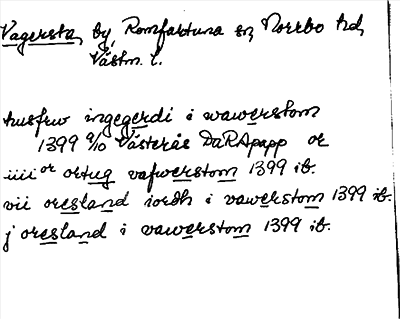 Vagersta, by, Romfartuna sn, Norrbo hd,
Västm. l.
husfrw ingegerdi i wawerstom
1399 9/10 Västerås DaRApapp or
iiii or ortug vafwerstom 1399 ib.
vii oresland iordh i vawerstom 1399 ib.
j oresland i vawerstom 1399 ib.